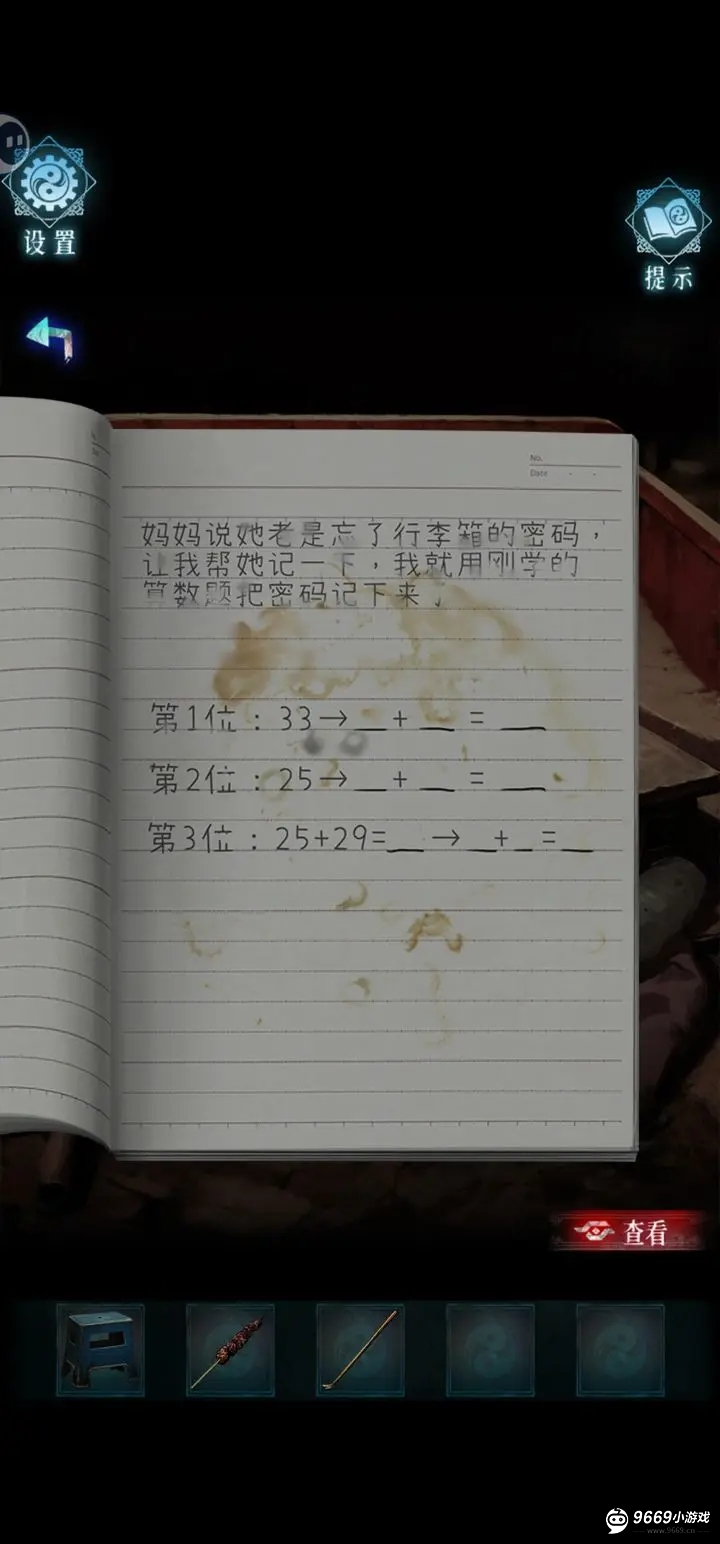 设置
提示
No.
Date
妈妈说她老是忘了行李箱的密码，
让我帮她记一下，我就用刚学的
算数题把密码记下来了
第1位：33→__+__=__
第2位：25→__+__=__
第3位：25+29=__→__+__=__
查看
9669小游戏
www.9669.cn